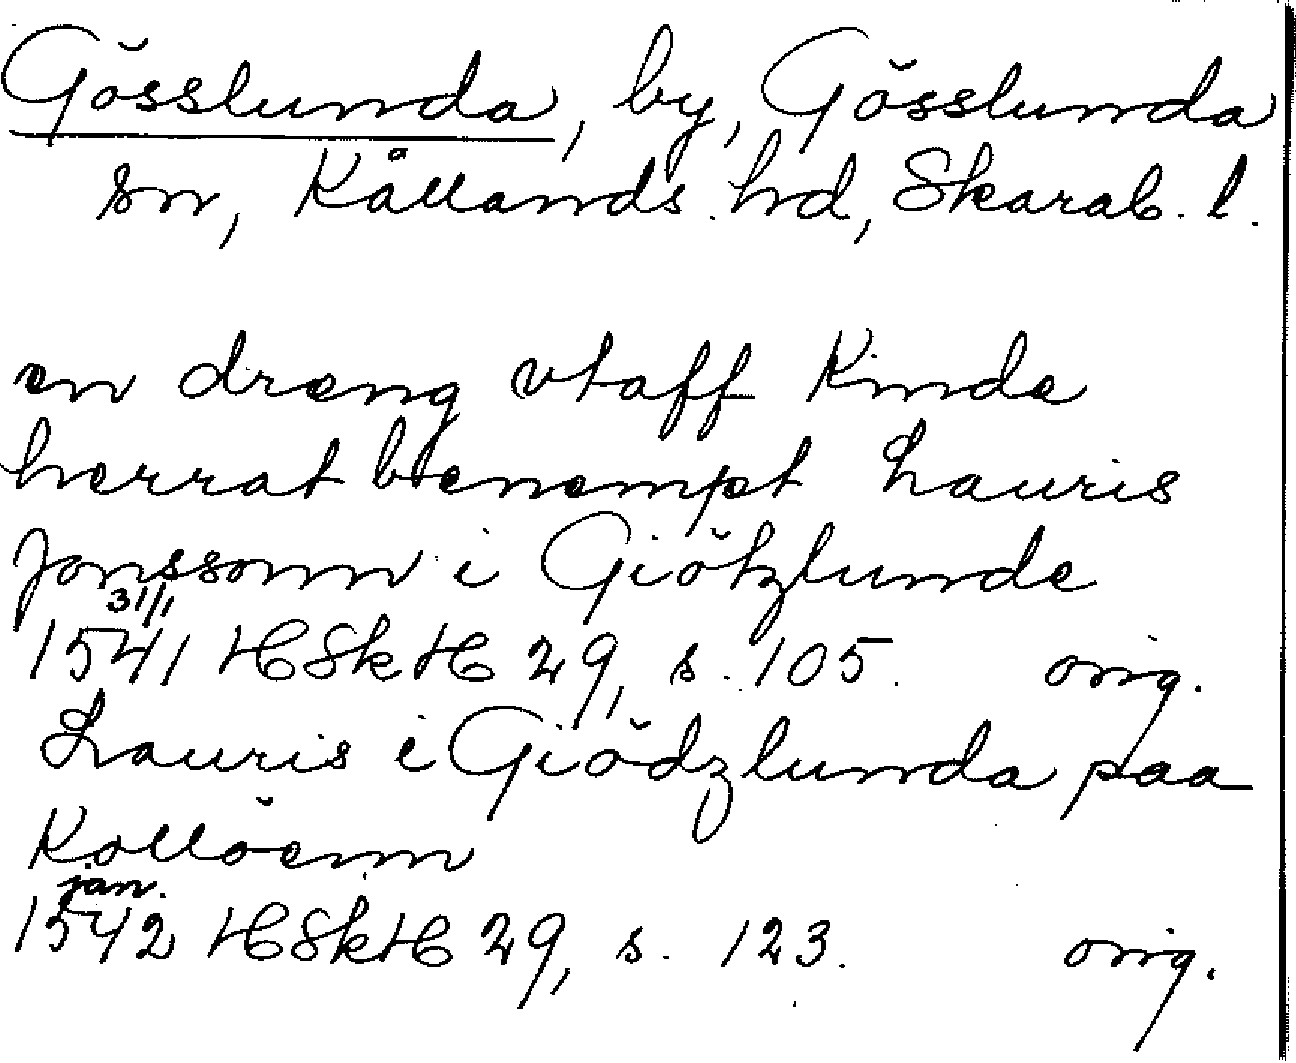 Gösslunda, by, Gösslunda
sn, Kållands hd, Skarab. l.
en dreng vtaff Kinde
herrat benempt Lauris
Jonssonn i Giötzlunde
31/1
1541 HSkH 29, s. 105. orig.
Lauris i Giödzlunda paa
Kollöenn
jan.
1542 HSkH 29, s. 123. orig.